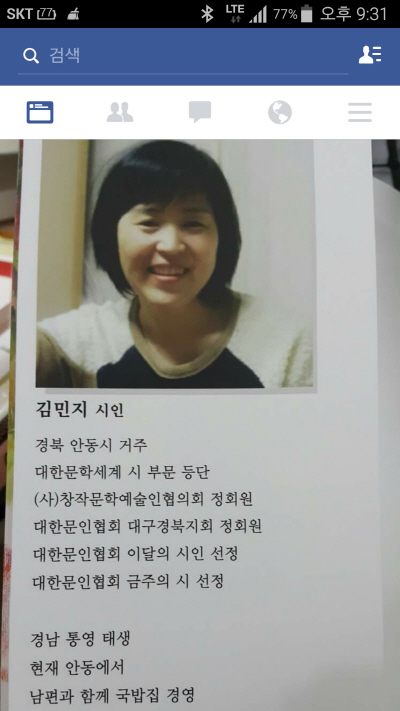 SKT 77 LTE 77% 오후 9:31
검색
김민지 시인
경북 안동시 거주
대한문학세계 시 부문 등단
(사)창작문학예술인협의회 정회원
대한문인협회 대구경북지회 정회원
대한문인협회 이달의 시인 선정
대한문인협회 금주의 시 선정
경남 통영 태생
현재 안동에서
남편과 함께 국밥집 경영